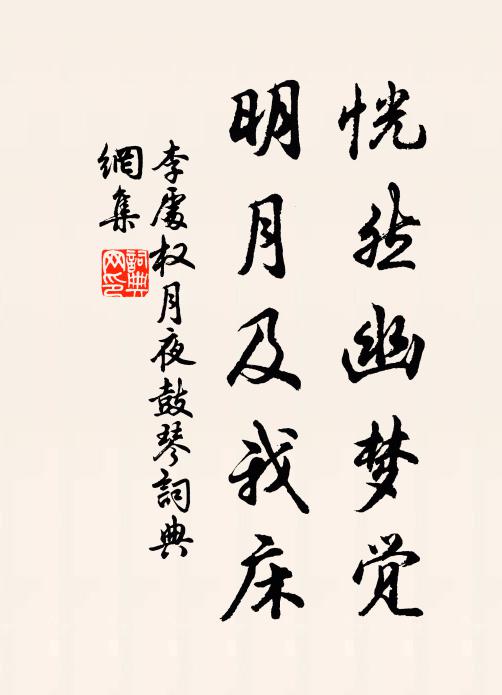 恍然幽梦觉
明月及我床
李处权月夜鼓琴詞典
網集
詞典
网印